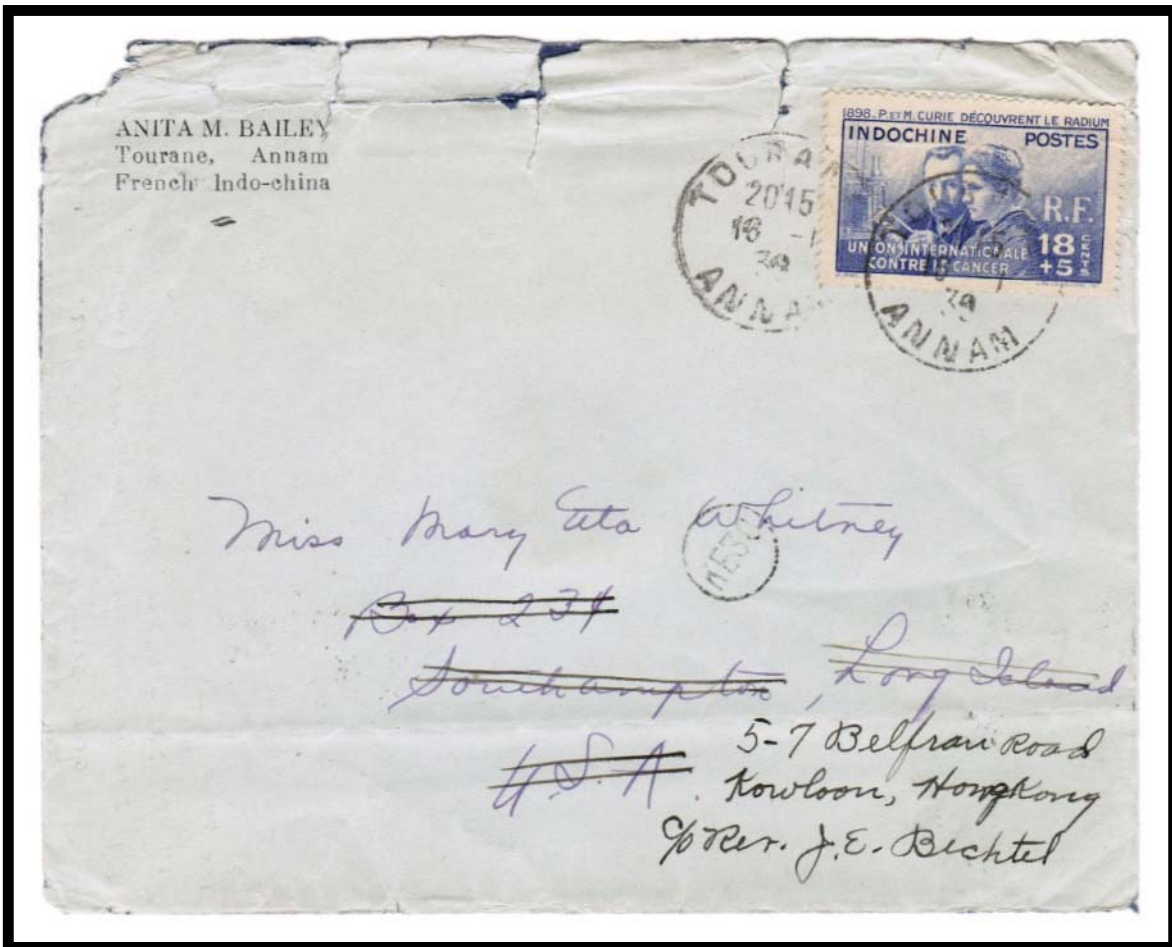 ANITA M. BAILEY
Tourane, Annam
French Indo-china
1898. P. ET M. CURIE DÉCOUVRENT LE RADIUM
INDOCHINE POSTES
R.F.
UNION INTERNATIONALE
CONTRE LE CANCER
18 CENTS
+5
2015
ANNAM
39
ANNAM
Miss Mary Etta Whitney
Box 234
Southampton, Long Island
U.S.A.
5-7 Belfran Road
Kowloon, Hongkong
c/o Rev. J.E. Bechtel